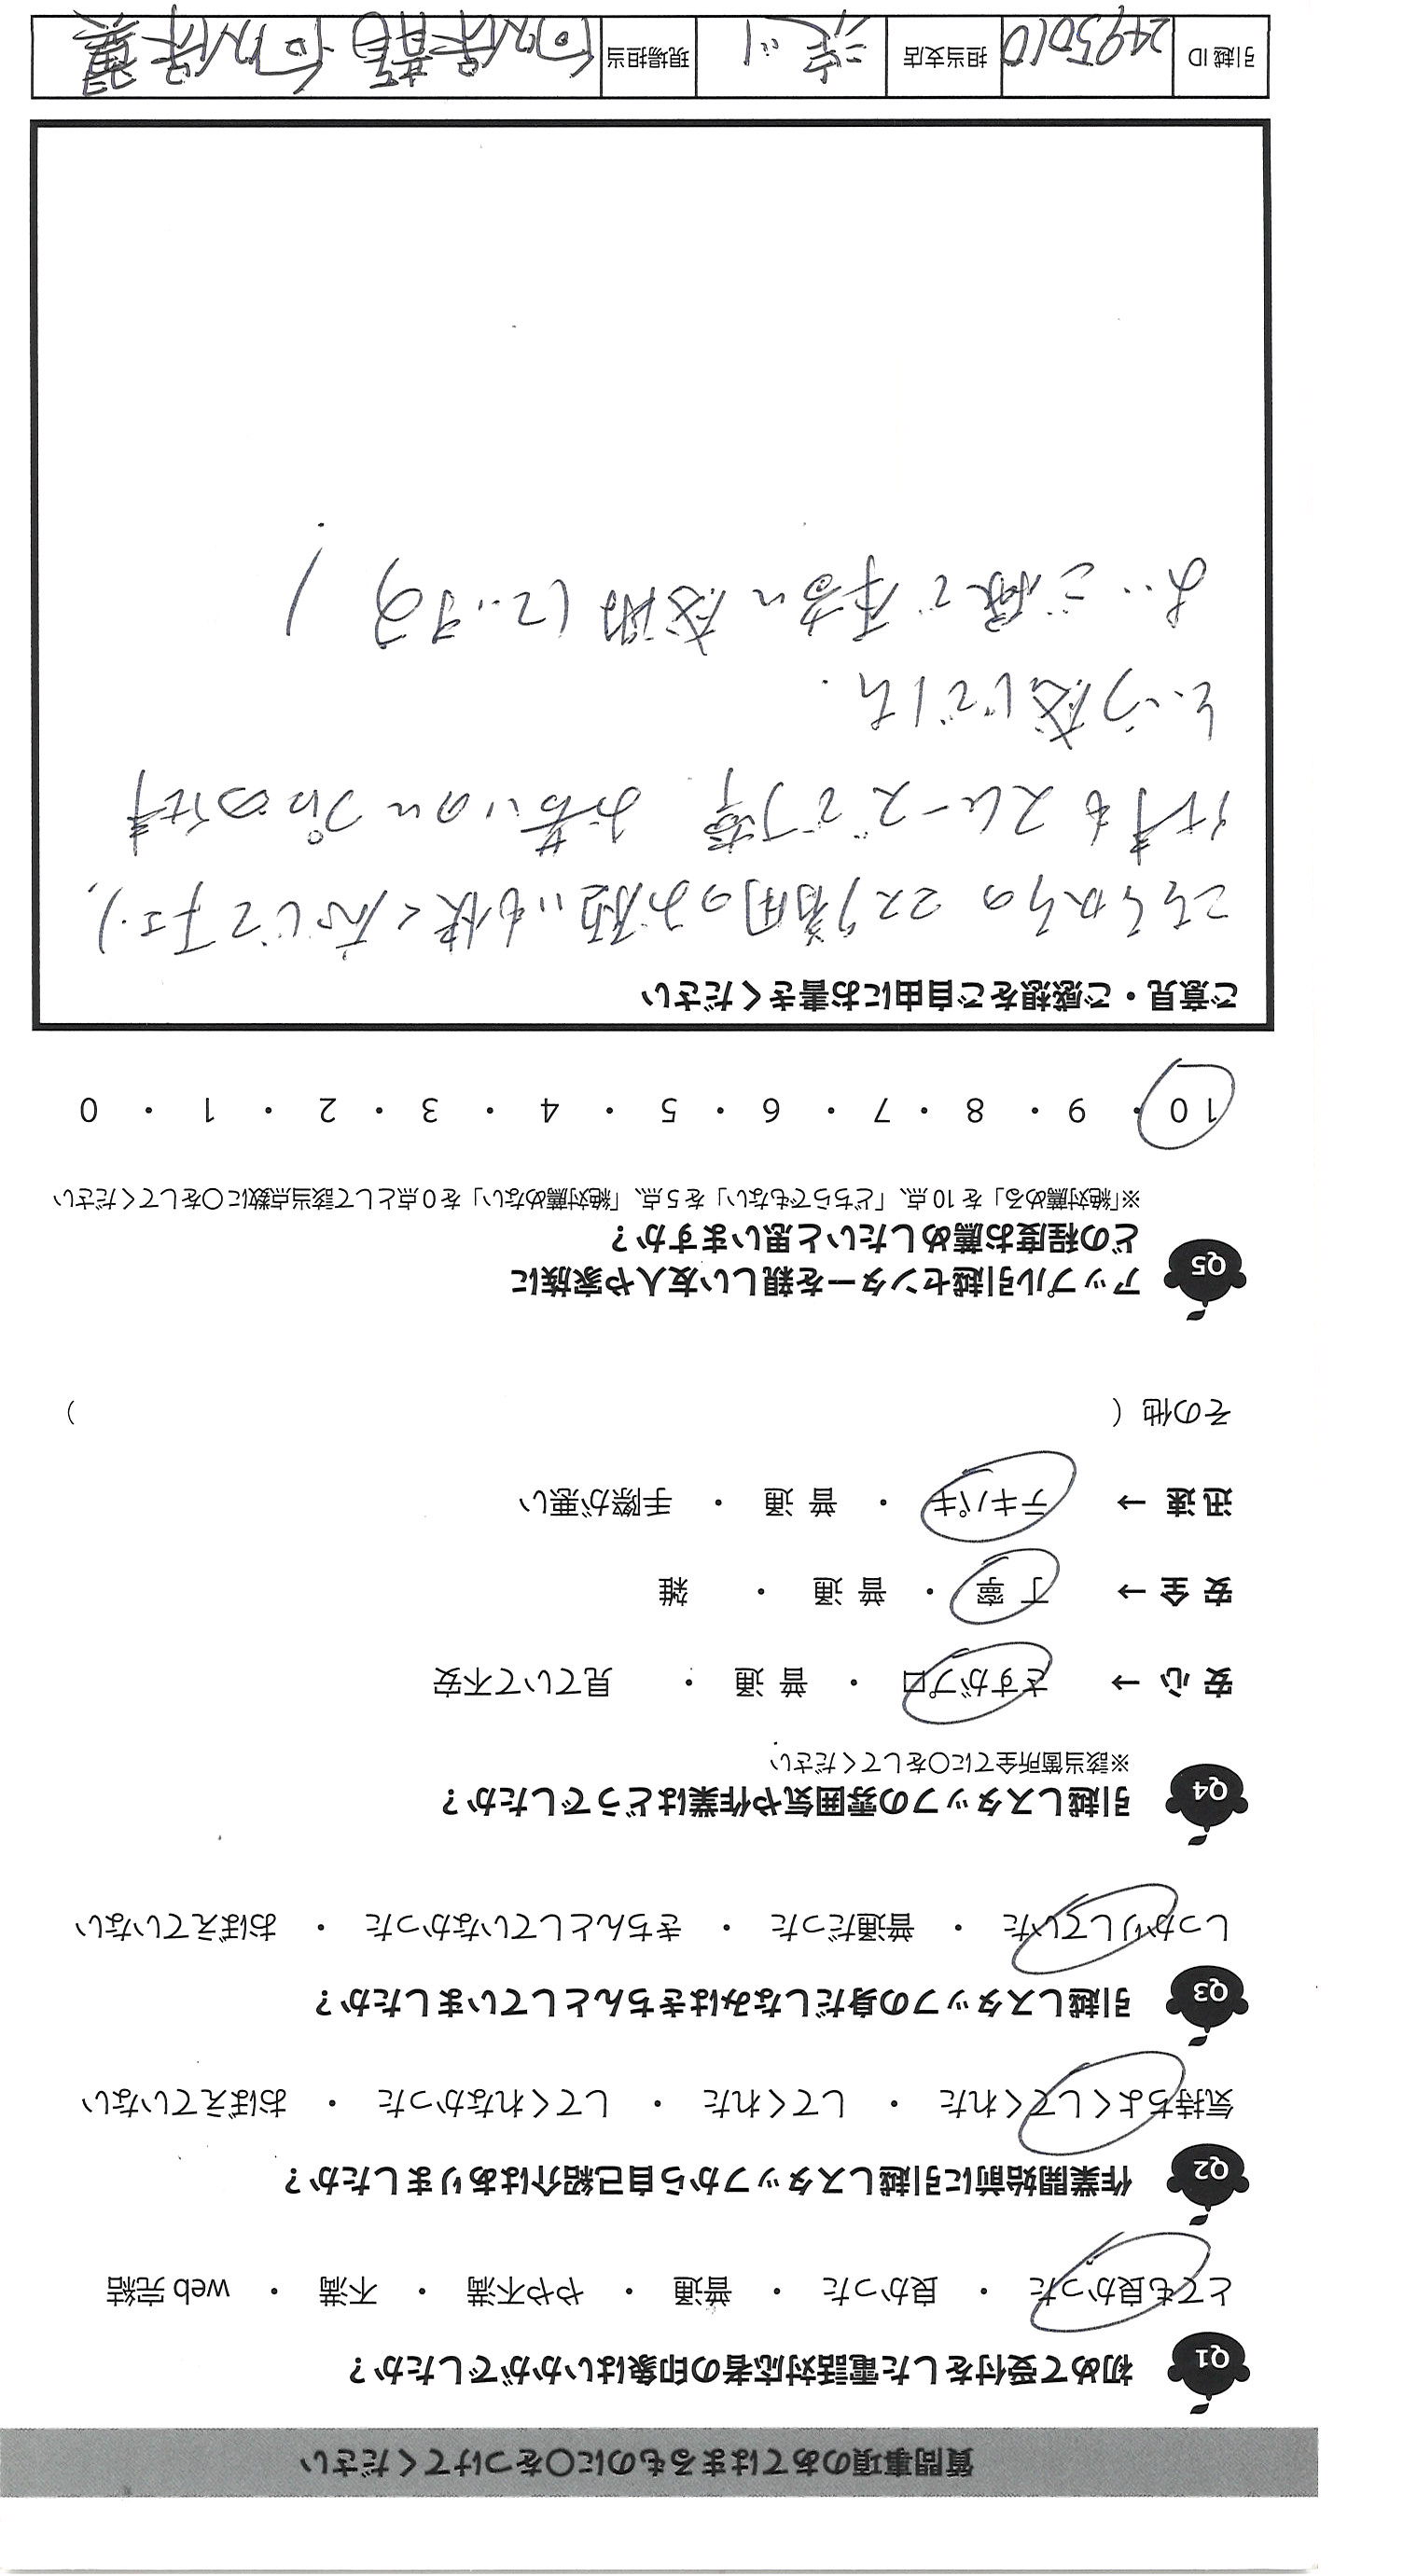 質問事項のあてはまるものに○をつけてください
Q1 初めて受付をした電話対応者の印象はいかがでしたか？
とても良かった ・ 良かった ・ 普通 ・ やや不満 ・ 不満 ・ web 完結
Q2 作業開始前に引越しスタッフから自己紹介はありましたか？
気持ちよくしてくれた ・ してくれた ・ してくれなかった ・ おぼえていない
Q3 引越しスタッフの身だしなみはきちんとしていましたか？
しっかりしていた ・ 普通だった ・ きちんとしていなかった ・ おぼえていない
Q4 引越しスタッフの雰囲気や作業はどうでしたか？
※該当箇所全てに○をしてください
安 心 → さすがプロ ・ 普 通 ・ 見ていて不安
安 全 → 丁 寧 ・ 普 通 ・ 雑
迅 速 → テキパキ ・ 普 通 ・ 手際が悪い
その他（ ）
Q5 アップル引越センターを親しい友人や家族に
どの程度お薦めしたいと思いますか？
※「絶対薦める」を 10 点、「どちらでもない」を 5 点、「絶対薦めない」を 0 点として該当点数に○をしてください
10 ・ 9 ・ 8 ・ 7 ・ 6 ・ 5 ・ 4 ・ 3 ・ 2 ・ 1 ・ 0
ご意見・ご感想をご自由にお書きください
こちらからのマスク着用のお願いも快く応じて下さり、
作業もスムーズで丁寧 お若いのにプロの仕事
という感じでした.
よいご縁で本当に感謝しています
引越 ID 2493010 担当支店 現場担当